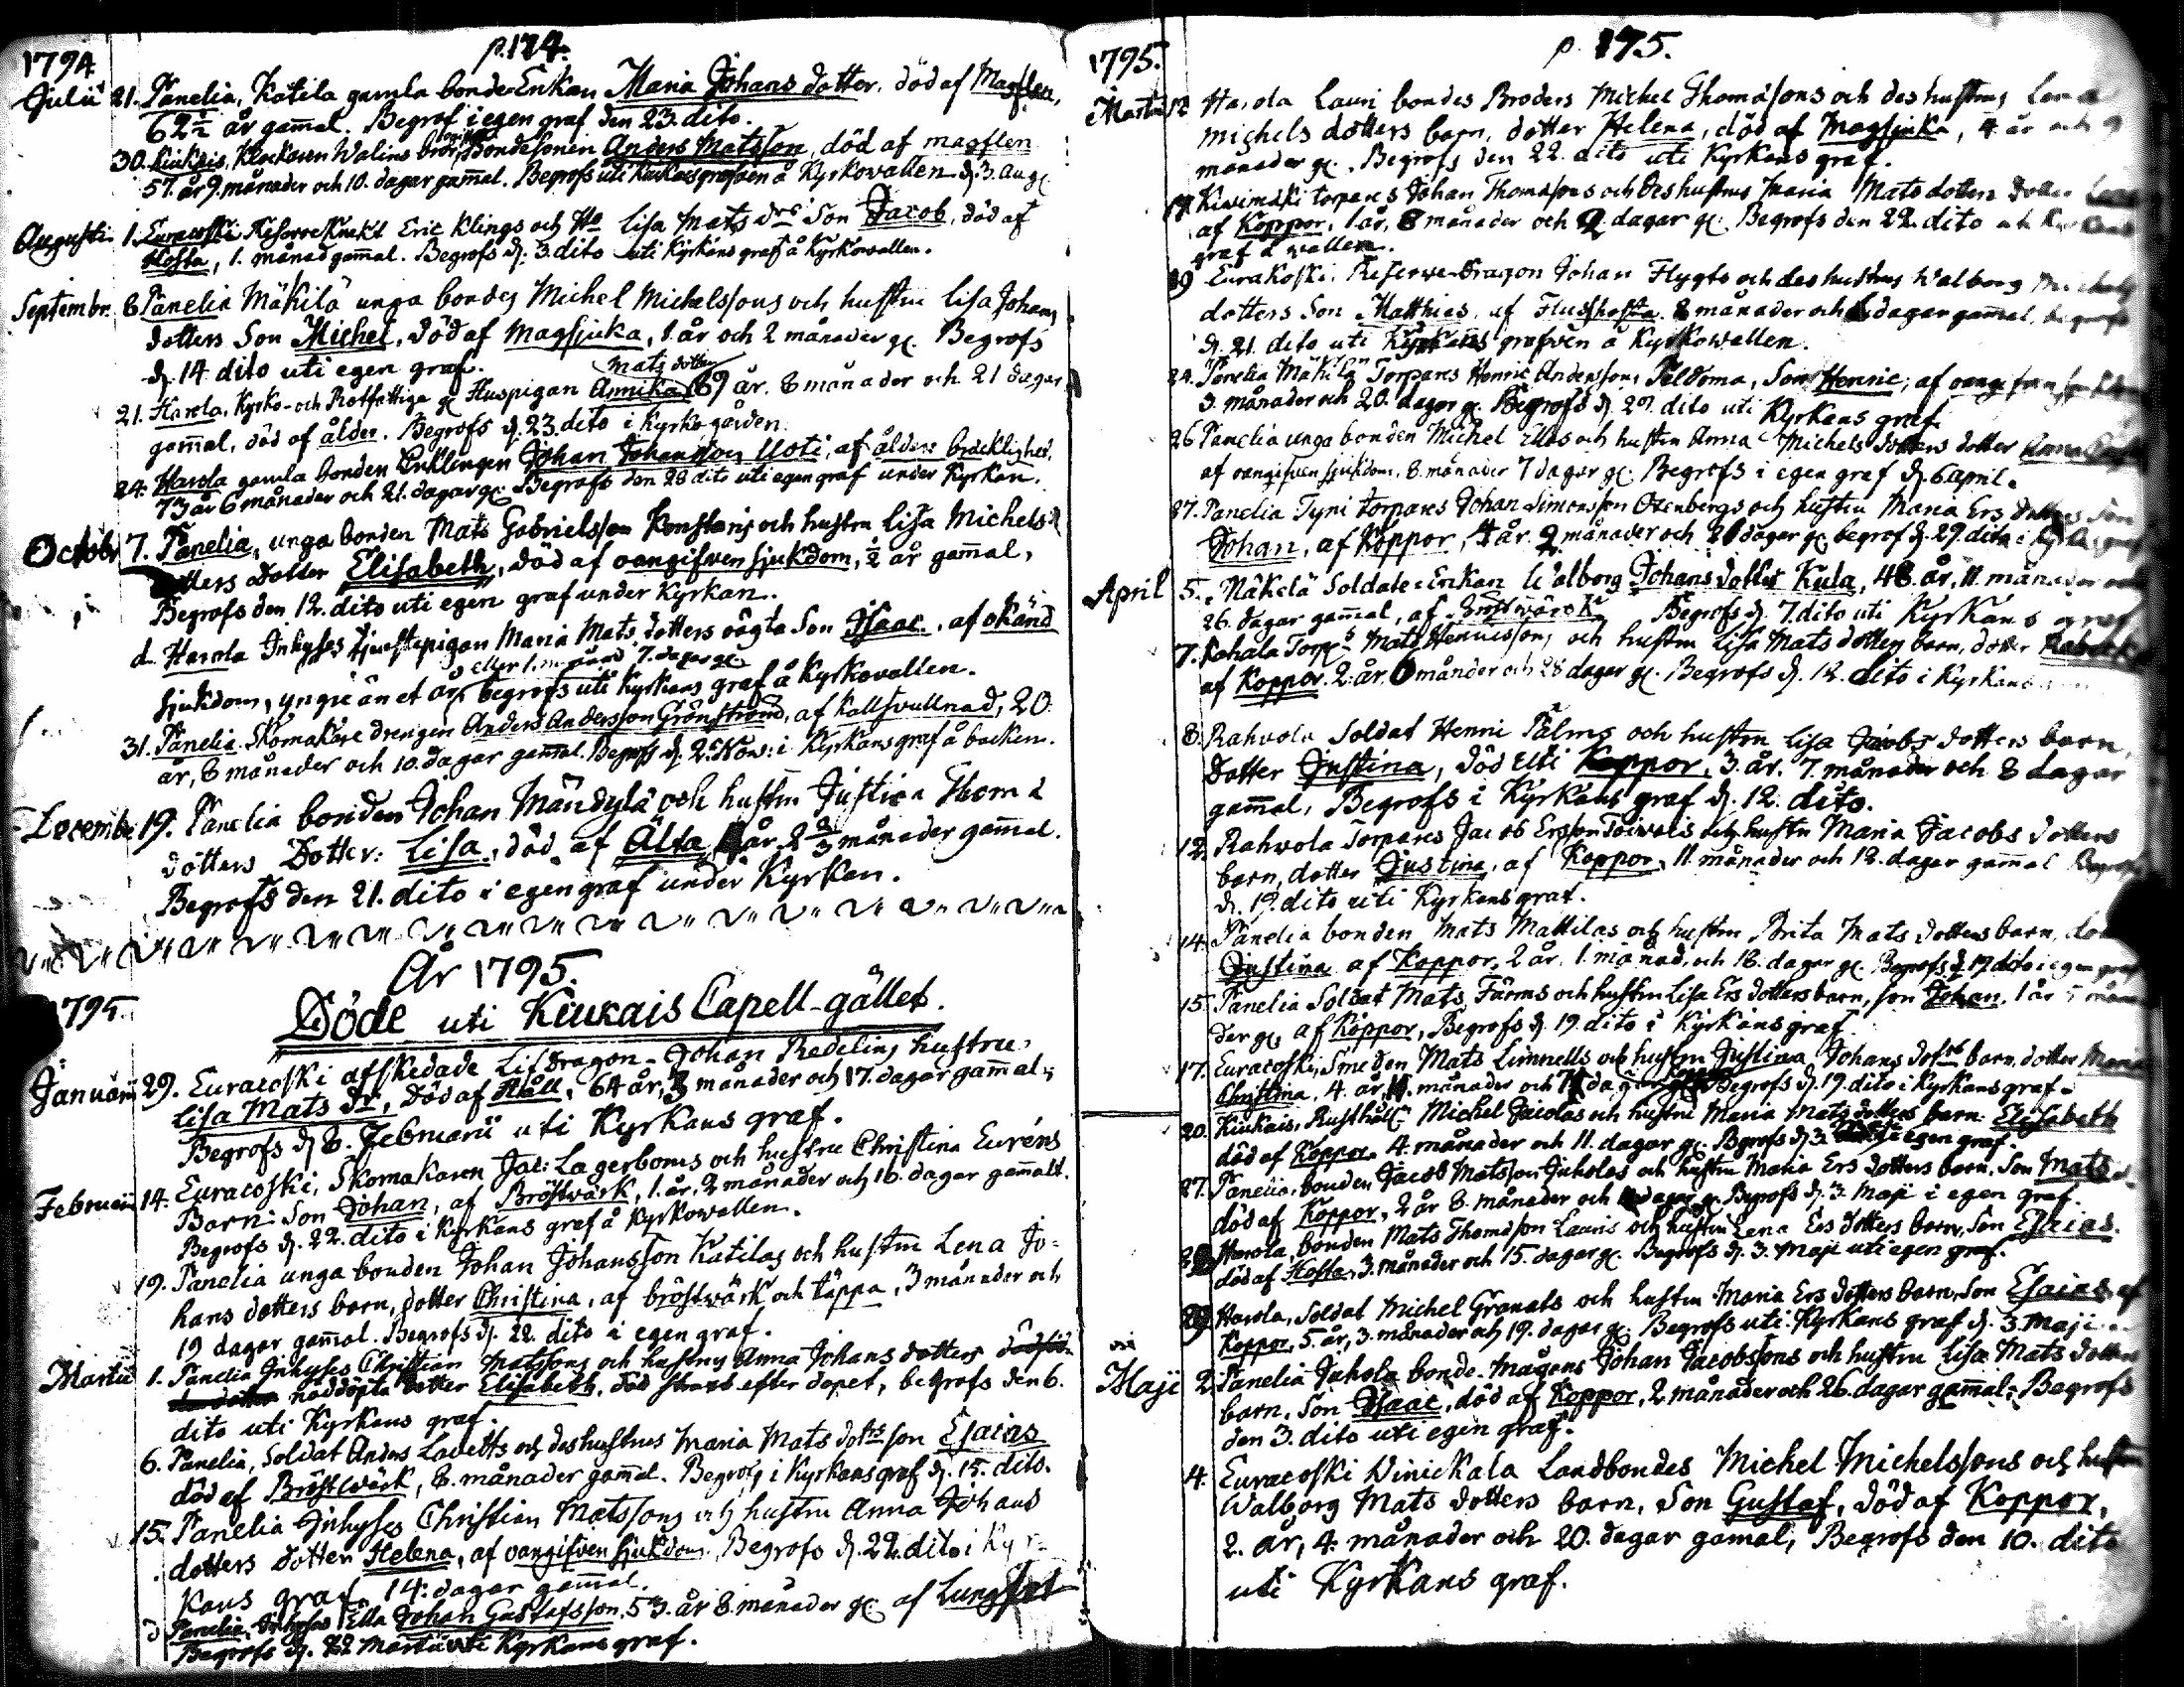 p. 174.
1794
Julii 21. Panelia, Katila gamla bonde Enkan Maria Johans dotter, död af Magplen,
62½ år gam̄al. Begrof i egen graf den 23. dito.
30. Kiukais, Klockaren Walins bror, Bondesonen Anders Matsson, död af magplen
57. år 9. månader och 10. dagar gam̄al. Begrofs uti Kyrkans grafven å Kyrkovallen d. 3. Aug.
Augusti 1. Euracoski Reserve Knekt Eric Klings och Ho Lisa Mats drs Son Jacob, död af
Hosta, 1. månad gam̄al. Begrofs d. 3. dito uti Kyrkans graf å Kyrkovallen.
Septembr. 8. Panelia Mäkilä unga bondes Michel Michelssons och hustru Lisa Johans
dotters Son Michel, död af Magsjuka, 1. år och 2 månader g. Begrofs
d. 14 dito uti egen graf.
Mats dotter
21. Harola, Kyrko- och Rotfattiga g. Huspigan Annika 69 år. 8 månader och 21 dagar
gam̄al, död af ålder. Begrofs d. 23. dito i Kyrkogården.
24. Harola gamla bonden Enklingen Johan Johansson Uoti, af ålders bräcklighet,
73 år 6 månader och 21. dagar g. Begrofs den 28 dito uti egen graf under Kyrkan.
Octobr 7. Panelia, unga bonden Mats Gabrielsson Konstaris och hustru Lisa Michels
dotters dotter Elisabeth, död af oangifven sjukdom, ½ år gam̄al,
Begrofs den 12. dito uti egen graf under Kyrkan.
d. Harola Inhyses tjenstepigan Maria Mats dotters oägta Son Isaac, af okänd
eller 1. månad 7. dagar g.
sjukdom, yngre än et år, begrofs uti Kyrkans graf å Kyrkovallen.
31. Panelia. Skomakare drengen Anders Andersson Grönström, af Kallsvullnad, 20
år, 8 månader och 10. dagar gam̄al. Begrofs d. 2. Nov: i Kyrkans graf å backen.
Decembr 19. Panelia bonden Johan Mändylä och hustru Justina Thoma
dotters Dotter: Lisa, död af Älta, år 2 2/3 månader gam̄al.
Begrofs den 21. dito i egen graf under Kyrkan.
År 1795.
1795.
Döde uti Kiukais Capell-gället.
Januarii 29. Euracoski afskedade Lifdragon Johan Redelins hustru
Lisa Mats dr, död af Håll, 64 år, 3 månader och 17. dagar gam̄al.
Begrofs d. 8. Februarii uti Kyrkans graf.
Februarii 14. Euracoski, Skomakaren Jac: Lagerboms och hustru Christina Euréns
Barn: Son Johan, af Bröstvärk, 1. år, 2 månader och 16. dagar gam̄alt.
Begrofs d. 22. dito i Kyrkans graf å Kyrkowallen.
19. Panelia unga bonden Johan Johansson Katilas och hustru Lena Jo-
hans dotters barn, dotter Christina, af bröstwärk och täppa, 3 månader och
19 dagar gam̄al. Begrofs d. 22. dito i egen graf.
Martii 1. Panelia Inhyses Christian Matssons och hustrus Anna Johans dotters
nöddöpta dotter Elisabeth, död strax efter dopet, begrofs den 6.
dito uti Kyrkans graf.
6. Panelia, Soldat Anders Lavetts och des hustrus Maria Mats dotrs son Esaias
död af Bröstwärk, 8. månader gam̄al. Begrofs i Kyrkans graf d. 15. dito.
15. Panelia Inhyses Christian Matssons och hustru Anna Johans
dotters dotter Helena, af oangifven sjukdom, Begrofs d. 22. dito i Kyr-
kans graf, 14. dagar gam̄al.
d Panelia, Inhyses Ella Johan Gustafsson, 53. år 8. månader g. af Lungsot
Begrofs d. 22 Martii uti Kyrkans graf.
p. 175.
1795.
Martii 12 Harola Lauri bondes Broders Michel Thomassons och des hustrus Lena
Michels dotters barn, dotter Helena, död af Magsjuka, 4. år och
månader g. Begrofs den 22. dito uti Kyrkans graf.
Kiwimäki torpares Johan Thomassons och des hustrus Maria Mats dotters dotter
af Koppor, 1 år, 8 månader och 2 dagar g. Begrofs den 22. dito uti Kyrkans
graf å vallen.
19 Eurakoski. Reserve-Dragon Johan Flygts och des hustrus Walborg Michels
dotters Son Matthias, af Flusshosta, 8 månader och dagar gam̄al, begrofs
d. 21. dito uti Kyrkans grafven å Kyrkowallen.
24. Panelia Mäkilä Torpares Henric Andersson, Peldoma, Son Henric, af oangifven
3. månader och 20. dagar g. Begrofs d. 29. dito uti Kyrkans graf.
26 Panelia unga bonden Michel Ellas och hustru Anna Michels dotters dotter
af oangifven sjukdom, 8. månader 7 dagar g. Begrofs i egen graf d. 6 april.
27. Panelia Tyni torpares Johan Simonsson Oxenbergs och hustru Maria Ers dotters Son
Johan, af Koppor, 4 år. 2 månader och 20 dagar g. begrof d. 29. dito i
April 5. Näkelä Soldats-Enkan Walborg Johans dotter Kula, 48. år, 11. månader och
26. dagar gam̄al, af Bröstwärck Begrofs d. 7. dito uti Kyrkans graf
7. Rahala Torp:s Mats Henricsson, och hustru Lisa Mats dotters barn, dotter
af Koppor. 2. år. 6 månader och 28 dagar g. Begrofs d. 12. dito i Kyrkans
8. Rahvola Soldat Henric Palms och hustru Lisa Jacobs dotters barn,
Dotter Justina, död uti Koppor, 3. år. 7. månader och 8 dagar
gam̄al, Begrofs i Kyrkans graf d. 12. dito.
12. Rahvola Torpares Jacob Ersson Toivois och hustru Maria Jacobs dotters
barn, dotter Justina, af Koppor, 11. månader och 12. dagar gam̄al Begrofs
d. 19. dito uti Kyrkans graf.
14. Panelia bonden Mats Mattilas och hustru Brita Mats dotters barn,
Justina af Koppor, 2 år. 1. månad, och 18. dagar g. Begrofs d. 19 dito i egen graf
15. Panelia Soldat Mats Färms och hustru Lisa Ers dotters barn, son Johan, 1 år
der g. af Koppor, Begrofs d. 19. dito i Kyrkans graf.
17. Euracoski, Smeden Mats Limnells och hustru Justina Johans dotrs barn, dotter Maria
Christina, 4. år, 11. månader och dagar Begrofs d. 19. dito i Kyrkans graf.
20. Kiukais, Rusthåll: Michel Jacolas och hustru Maria Mats dotters barn: Elisabeth
död af Koppor. 4. månader och 11. dagar g. Bgrofs d. 3. Maji i egen graf.
27. Panelia, bonden Jacob Matsson Juholas och hustru Maria Ers dotters barn, Son Mats
död af Koppor, 2 år 8. månader och dagar g. Begrofs d. 3. Maji i egen graf.
Harola, bonden Mats Thomasson Lauris och hustru Lena Ers dotters barn, Son Esaias.
död af Hosta, 3. månader och 15. dagar g. Begrofs d. 3. Maji uti egen graf.
29. Harola, Soldat Michel Granats och hustru Maria Ers dotters barn, Son Esaias af
Koppor, 5. år, 3. månader och 19. dagar g. Begrofs uti Kyrkans graf d. 3. Maji
Maji 2. Panelia Juhola bonde-mågens Johan Jacobssons och hustru Lisa Mats dotters
barn, Son Isaac, död af Koppor, 2. månader och 26. dagar gam̄al; Begrofs
den 3. dito uti egen graf.
4. Euracoski Winickala Landbondes Michel Michelssons och hustru
Walborg Mats dotters barn, Son Gustaf, död af Koppor,
2. år, 4. månader och 20. dagar gamal, Begrofs den 10. dito
uti Kyrkans graf.